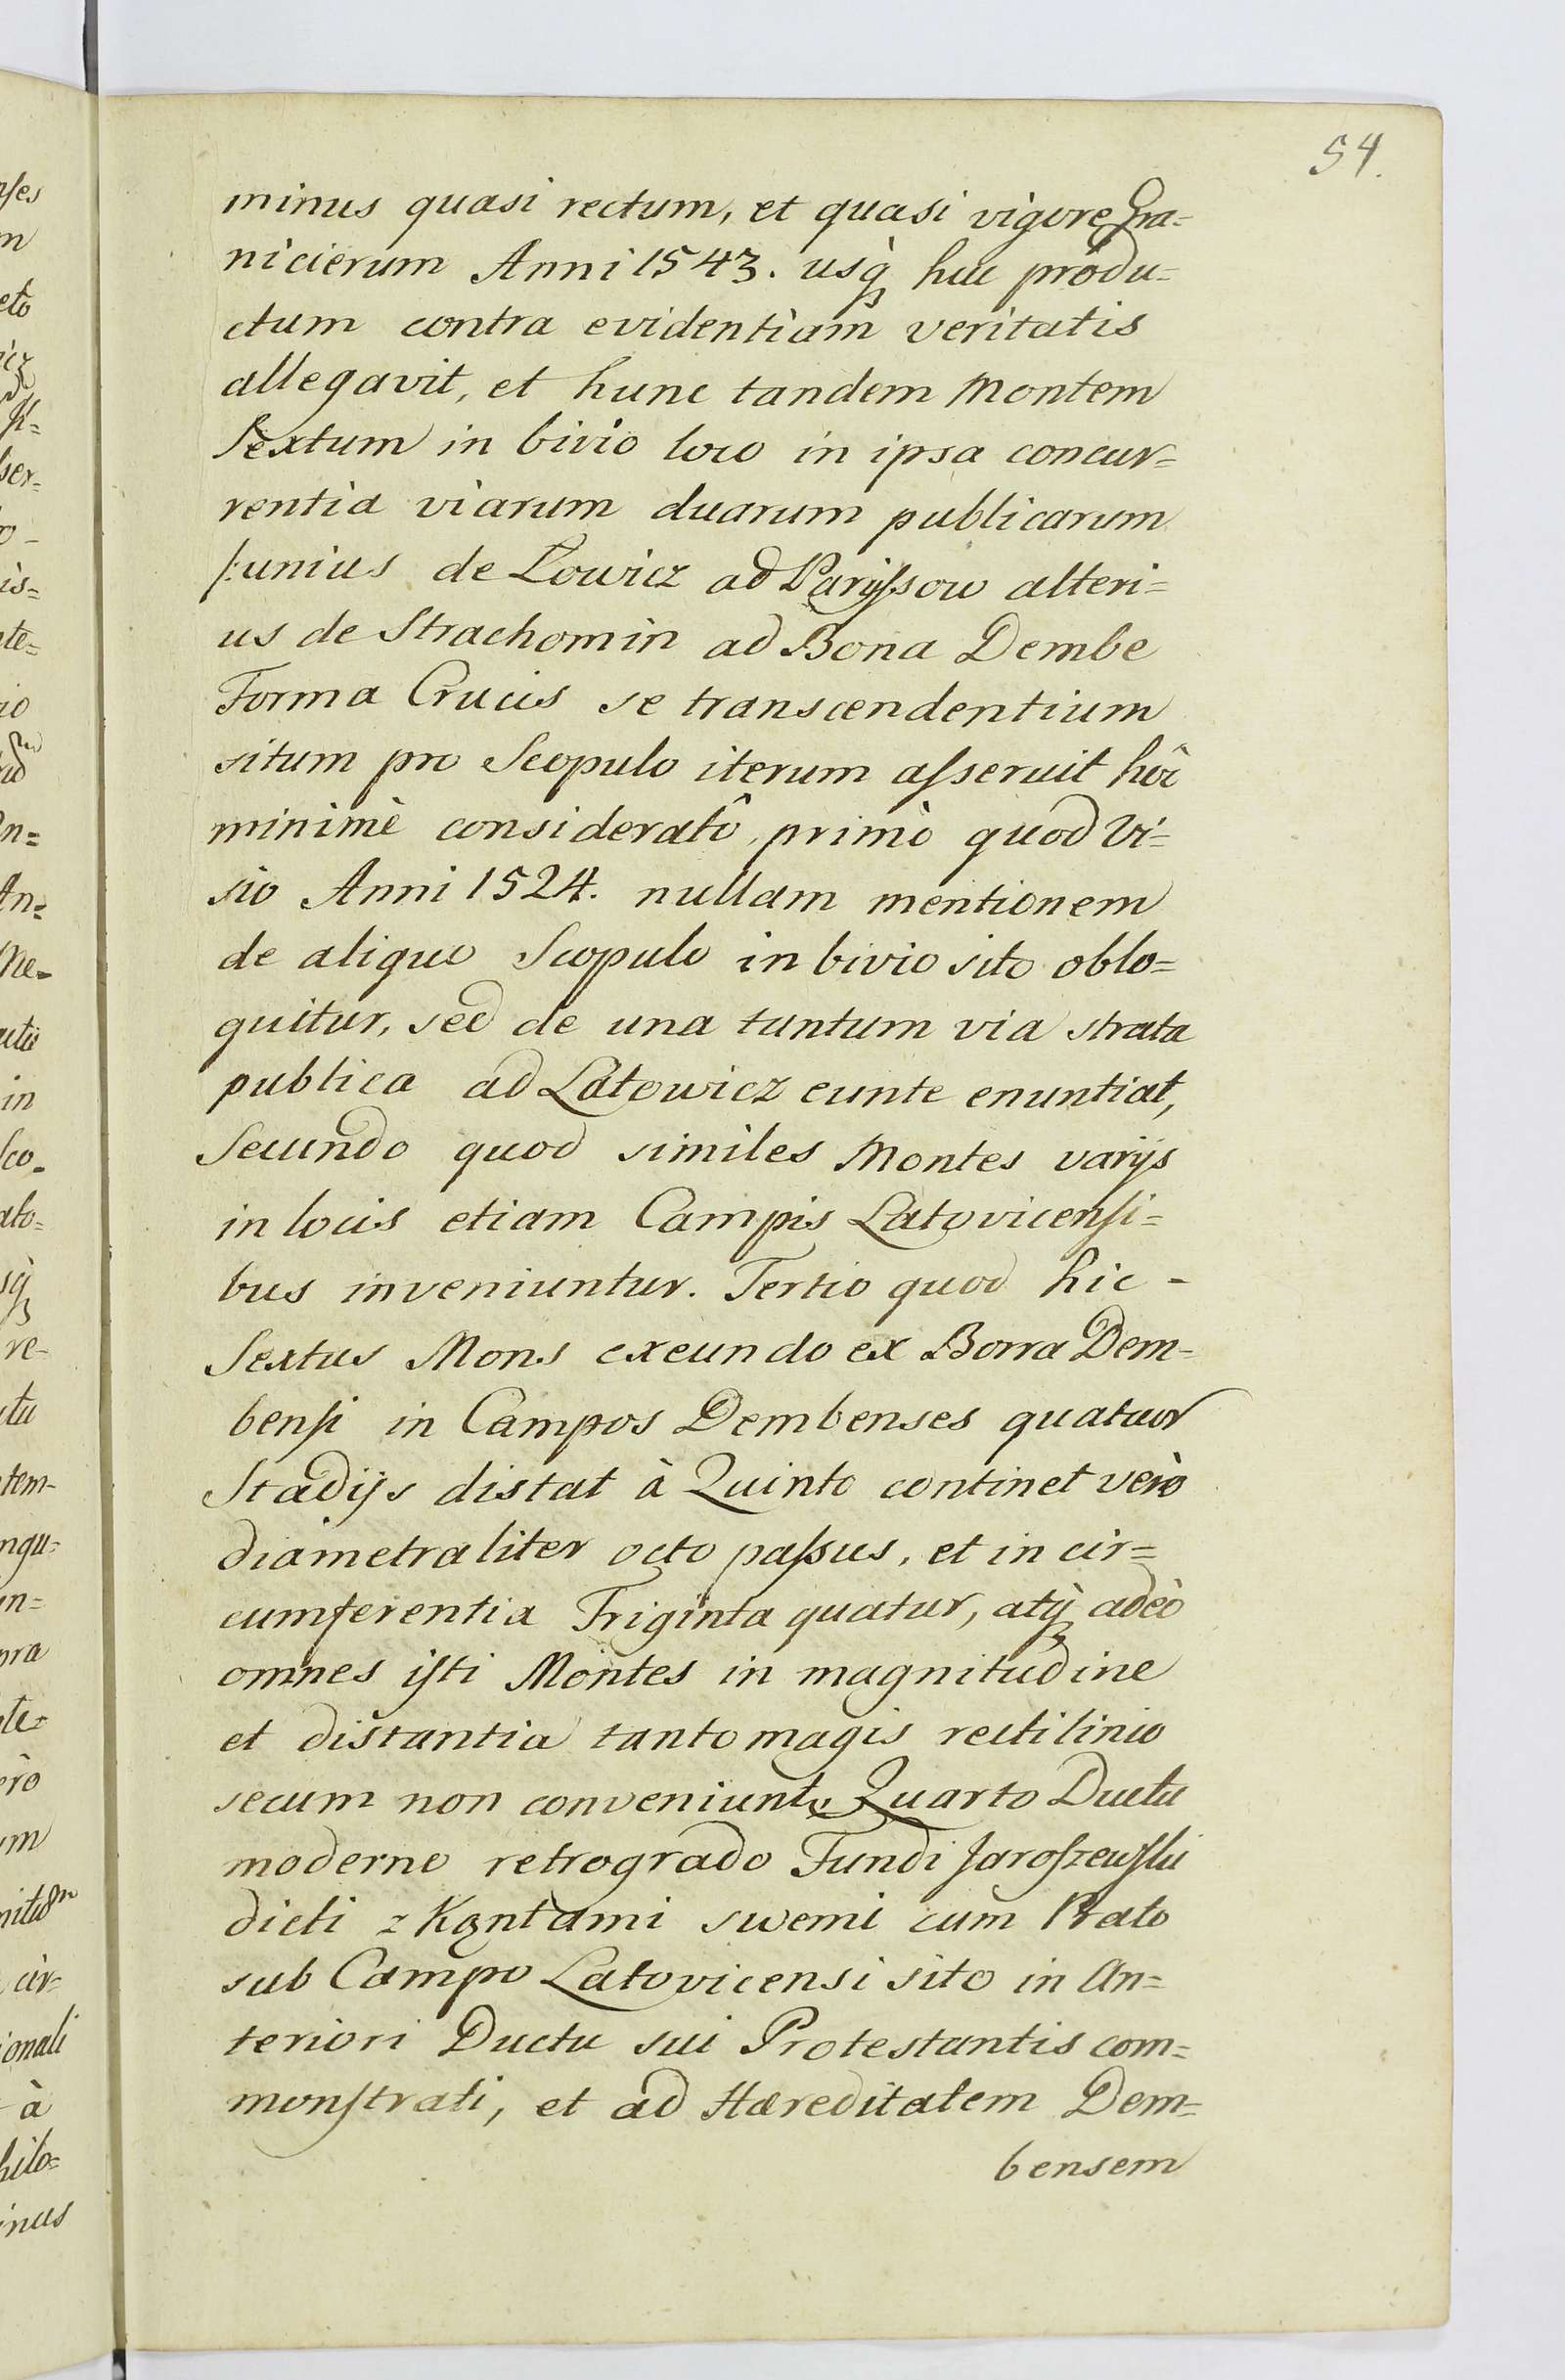 54.
minus quasi rectum, et quasi vigore Gra=
nicierum Anni 1543. usq₃ huc produ=
ctum contra evidentiam veritatis
allegavit, et hunc tandem Montem
Sextum in bivio loco in ipsa concur=
rentia viarum duarum publicarum
/:unius de Łowicz ad Paryſsow alteri=
us de Strachomin ad Bona Dembe
Forma Crucis se transcendentium
situm pro Scopulo iterum aſseruit hôc
minimè consideratô, primò quod Vi=
sio Anni 1524. nullam mentionem
de aliquo Scopulo in bivio sito oblo=
quitur, sed de una tantum via strata
publica ad Latowicz eunte enuntiat,
Secundo quod similes Montes varijs
in locis etiam Campis Latovicenſi=
bus inveniuntur. Tertio quod hic -
Sextus Mons exeundo ex Borra Dem=
benſi in Campos Dembenses quatuor
Stadijs distat à Quinto continet verò
diametraliter octo paſsus, et in cir=
cumferentia Triginta quatur, atq₃ adeò
omnes iſti Montes in magnitudine
et distantia tanto magis rectilinio
secum non conveniunt, Quarto Ductu
moderno retrogrado Fundi Jaroſzewſki
dicti z Kątami swemi cum Prato
sub Campo Latovicensi sito in An=
teriori Ductu sui Protestantis com=
monſtrati, et ad Hæreditatem Dem=
bensem